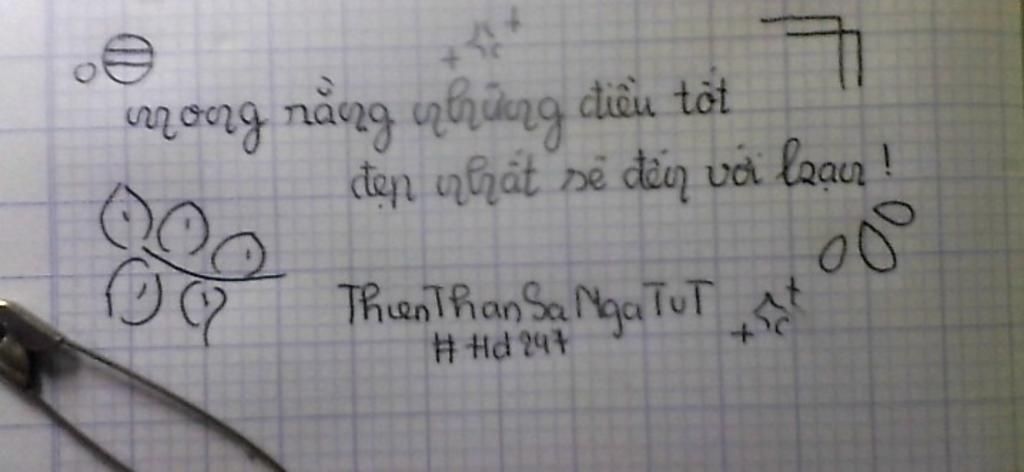 mong rằng những điều tốt
đẹp nhất sẽ đến với bạn!
ThienThanSaNgaTuT
#Hd247